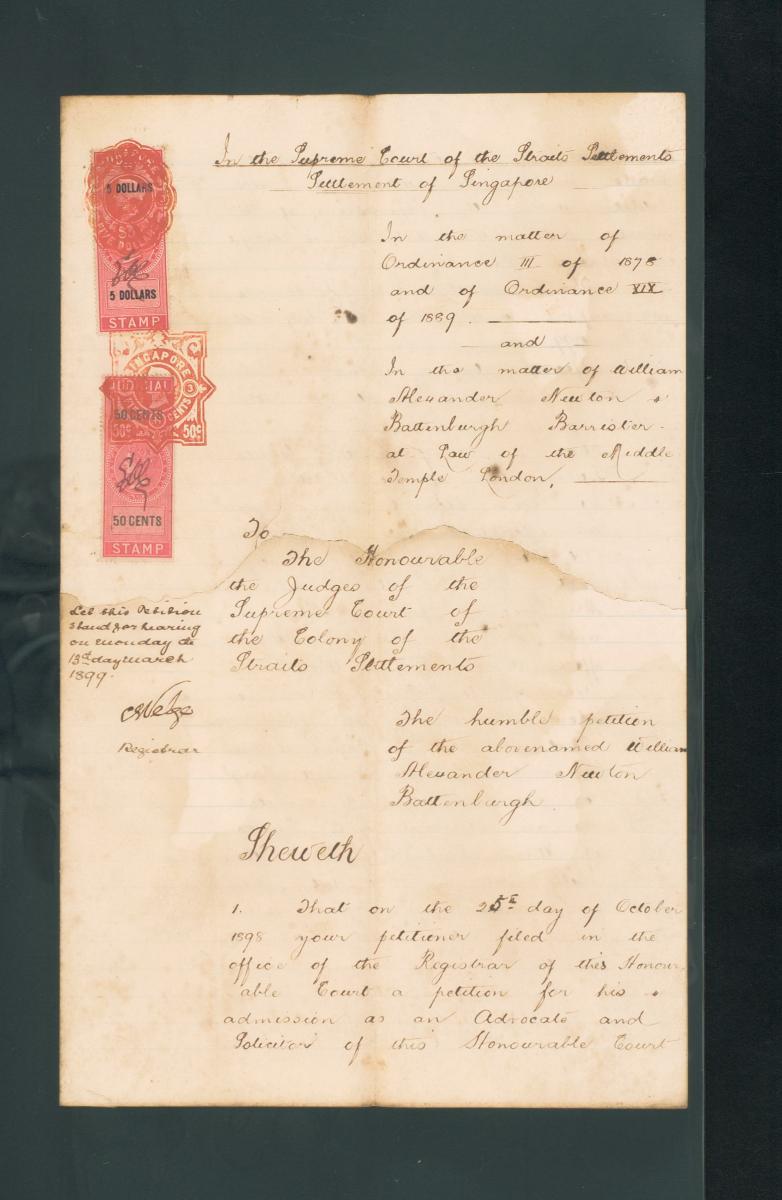 In the Supreme Court of the Straits Settlements
Settlement of Singapore
In the matter of
Ordinance III of 1878
and of Ordinance XIX
of 1889.
and
In the matter of William
Alexander Newton
Battenburgh Barrister-
at Law of the Middle
Temple London,
JUDICIAL
5 DOLLARS
FIVE DOLLARS
5 DOLLARS
STAMP
SINGAPORE
JUDICIAL
50 CENTS
50c
50c
50 CENTS
STAMP
To
The Honourable
the Judges of the
Supreme Court of
the Colony of the
Straits Settlements
Let this Petition
stand for hearing
on monday the
13th day march
1899.
Registrar
The humble petition
of the abovenamed William
Alexander Newton
Battenburgh
Sheweth
1. That on the 25th day of October
1898 your petitioner filed in the
office of the Registrar of this Honour-
able Court a petition for his
admission as an Advocate and
Solicitor of this Honourable Court